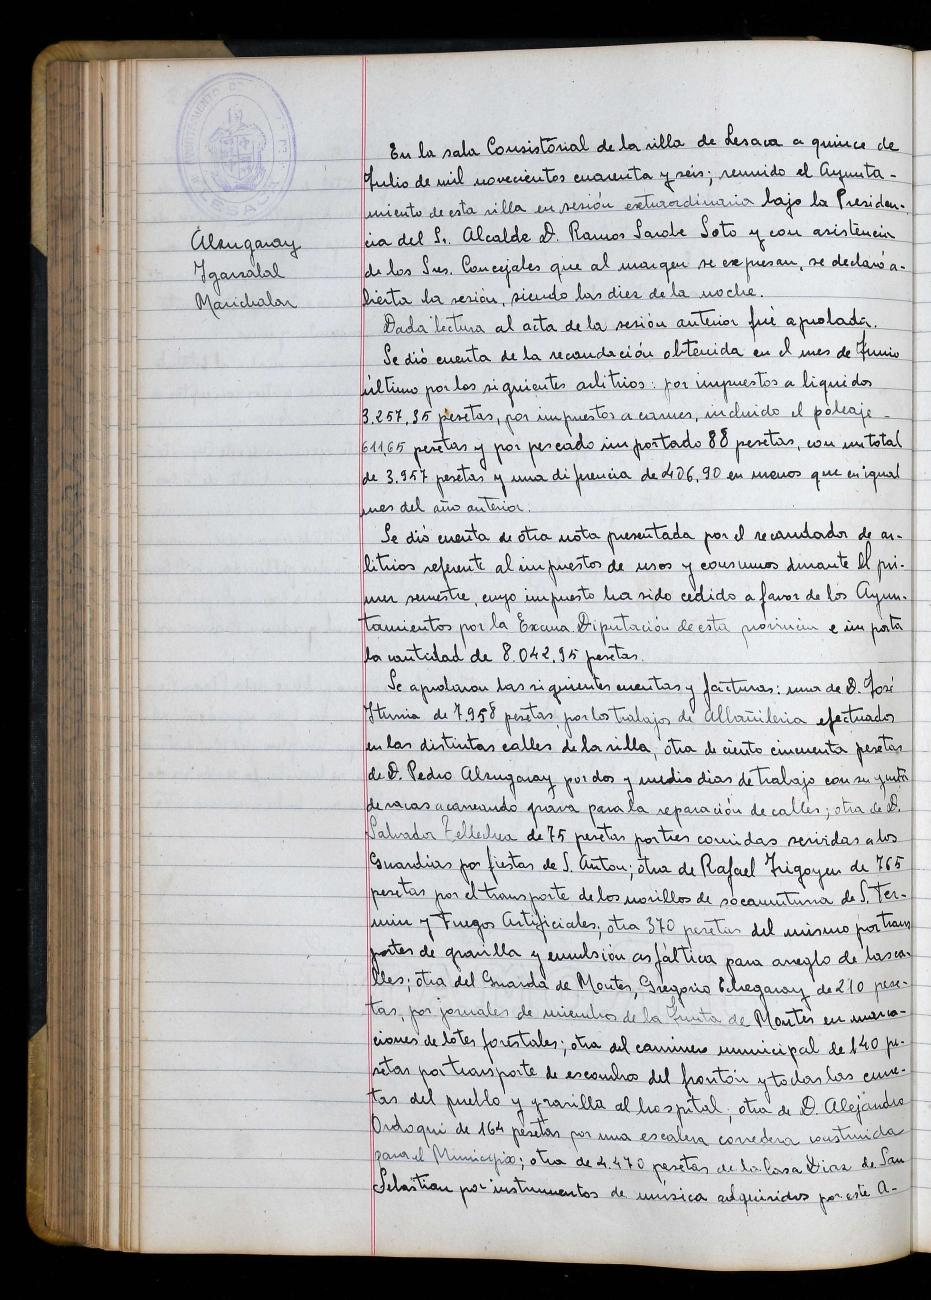 AYUNTAMIENTO DE
LESACA
Alzugaray
Igarzabal
Marichalar
En la sala Consistorial de la villa de Lesaca a quince de
Julio de mil novecientos cuarenta y seis; reunido el Ayunta-
miento de esta villa en sesión extraordinaria bajo la Presiden-
cia del Sr. Alcalde D. Ramos Sarobe Soto y con asistencia
de los Sres. Concejales que al margen se expresan, se declaró a-
bierta la sesión, siendo las diez de la noche.
Dada lectura al acta de la sesión anterior fué aprobada.
Se dió cuenta de la recaudación obtenida en el mes de Junio
último por los siguientes arbitrios: por impuestos a liquidos
3.257,35 pesetas, por impuestos a carnes, incluido el poleaje -
611,65 pesetas y por pescado importado 88 pesetas, con un total
de 3.957 pesetas y una diferencia de 406,90 en menos que en igual
mes del año anterior.
Se dió cuenta de otra nota presentada por el recaudador de ar-
bitrios referente al impuestos de usos y consumos durante el pri-
mer semestre, cuyo impuesto ha sido cedido a favor de los Ayun-
tamientos por la Excma. Diputación de esta provincia e importa
la cantidad de 8.042,95 pesetas.
Se aprobaron las siguientes cuentas y facturas: una de D. José
Iturria de 7.958 pesetas, por los trabajos de Albañileria efectuados
en las distintas calles de la villa, otra de ciento cincuenta pesetas
de D. Pedro Alzugaray por dos y medio dias de trabajo con su yunta
de vacas acarreando grava para la reparación de calles; otra de D.
Salvador Tellechea de 75 pesetas por tres comidas servidas a los
Guardias por fiestas de S. Anton; otra de Rafael Irigoyen de 765
pesetas por el transporte de los novillos de socamuturra de S. Fer-
min y Fuegos Artificiales; otra 370 pesetas del mismo por trans
portes de gravilla y emulsión asfáltica para arreglo de las ca-
lles; otra del Guarda de Montes, Gregorio Echegaray de 210 pese-
tas, por jornales de miembros de la Junta de Montes en marca-
ciones de lotes forestales; otra del caminero municipal de 140 pe-
setas por transporte de escombros del frontón y todas las cune-
tas del pueblo y gravilla al hospital, otra de D. Alejandro
Ordoqui de 164 pesetas por una escalera corredera construida
para el Municipio; otra de 4.470 pesetas de la Casa Diaz de San
Sebastian por instrumentos de música adquiridos por este A-